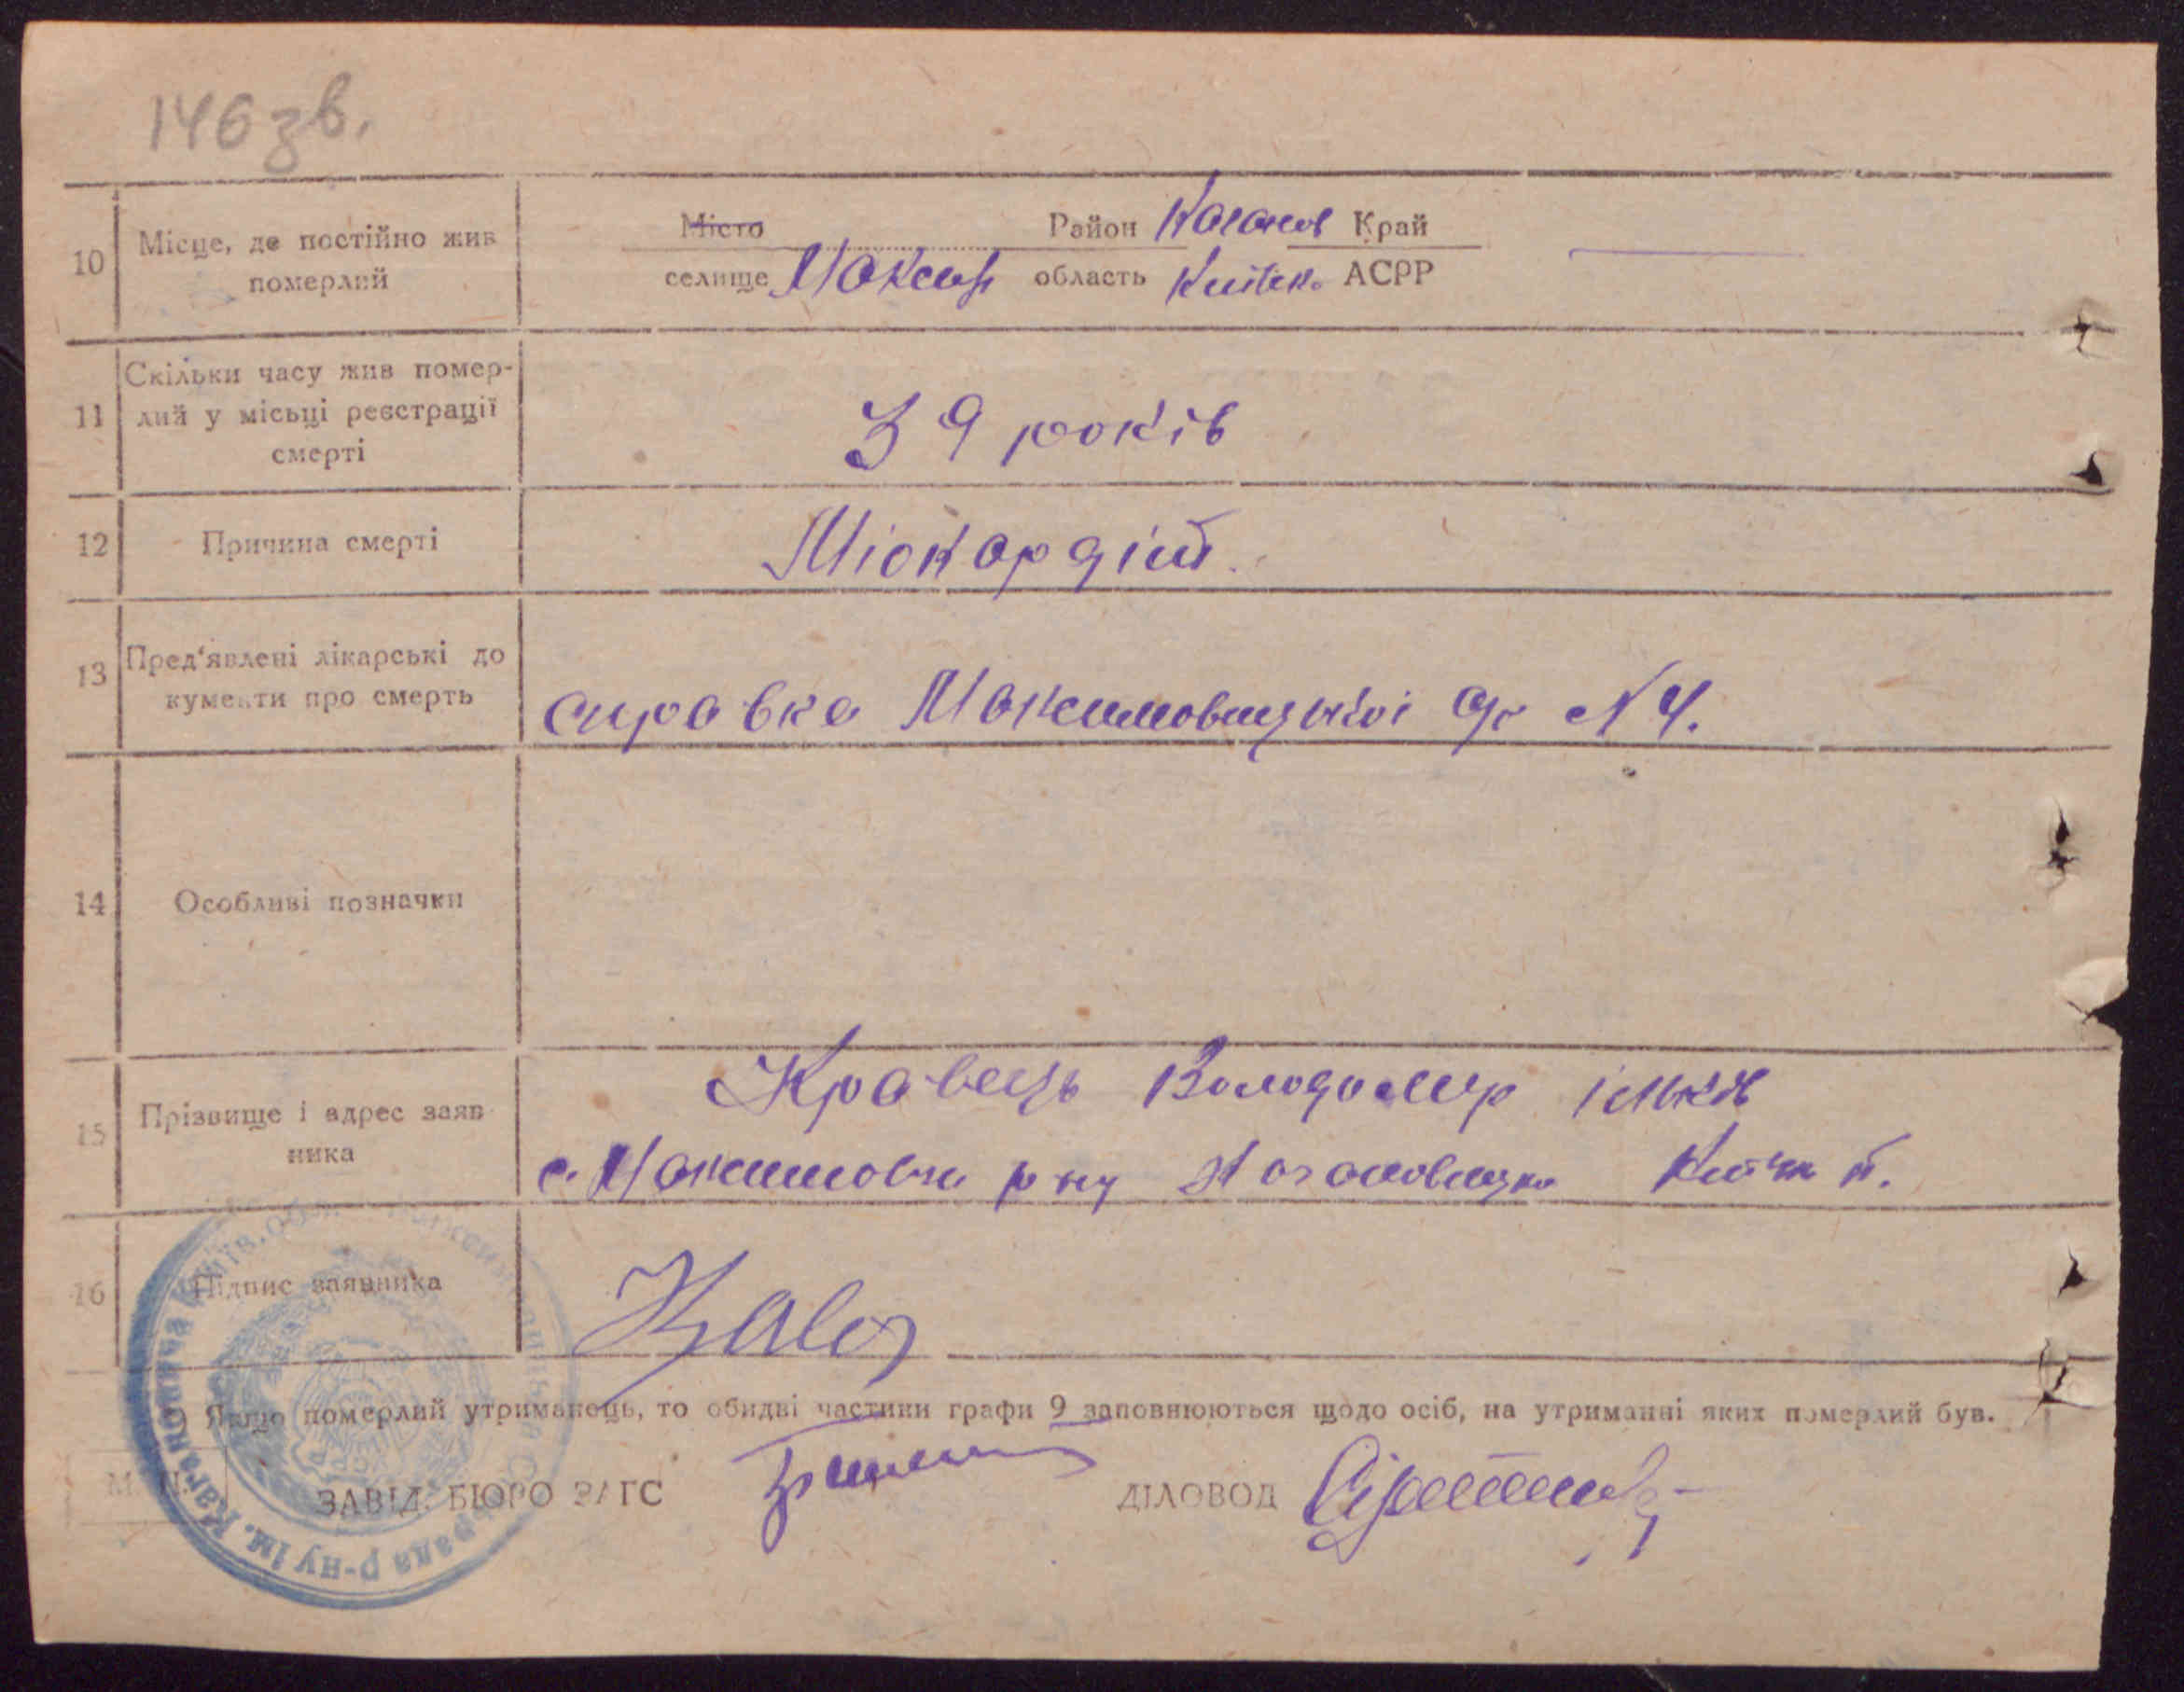 146 зв.
10 Місце, де постійно жив померлий
Місто Район Каганов Край
селище Максим область Київськ. АСРР
11 Скільки часу жив помер-
лий у місьці реєстрації
смерті
39 років
12 Причина смерті
Міокардіт.
13 Пред'явлені лікарські до
кументи про смерть
справка Максимовицької др N 4.
14 Особливі позначки
15 Прізвище і адрес заяв
ника
Кравець Володомир
с. Максимовичи р ну Кагановицько
16 Підпис заявника
Якщо померлий утриманець, то обидві частини графи 9 заповнюються щодо осіб, на утриманні яких померлий був.
М. П.
ЗАВІД. БЮРО ЗАГС
ДІЛОВОД
рада р-ну ім. Кагановича Київ. обл.